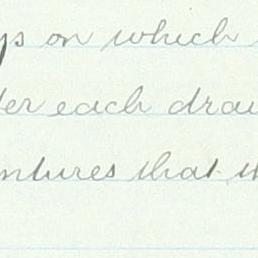 ys on which
er each draw
ntures that th